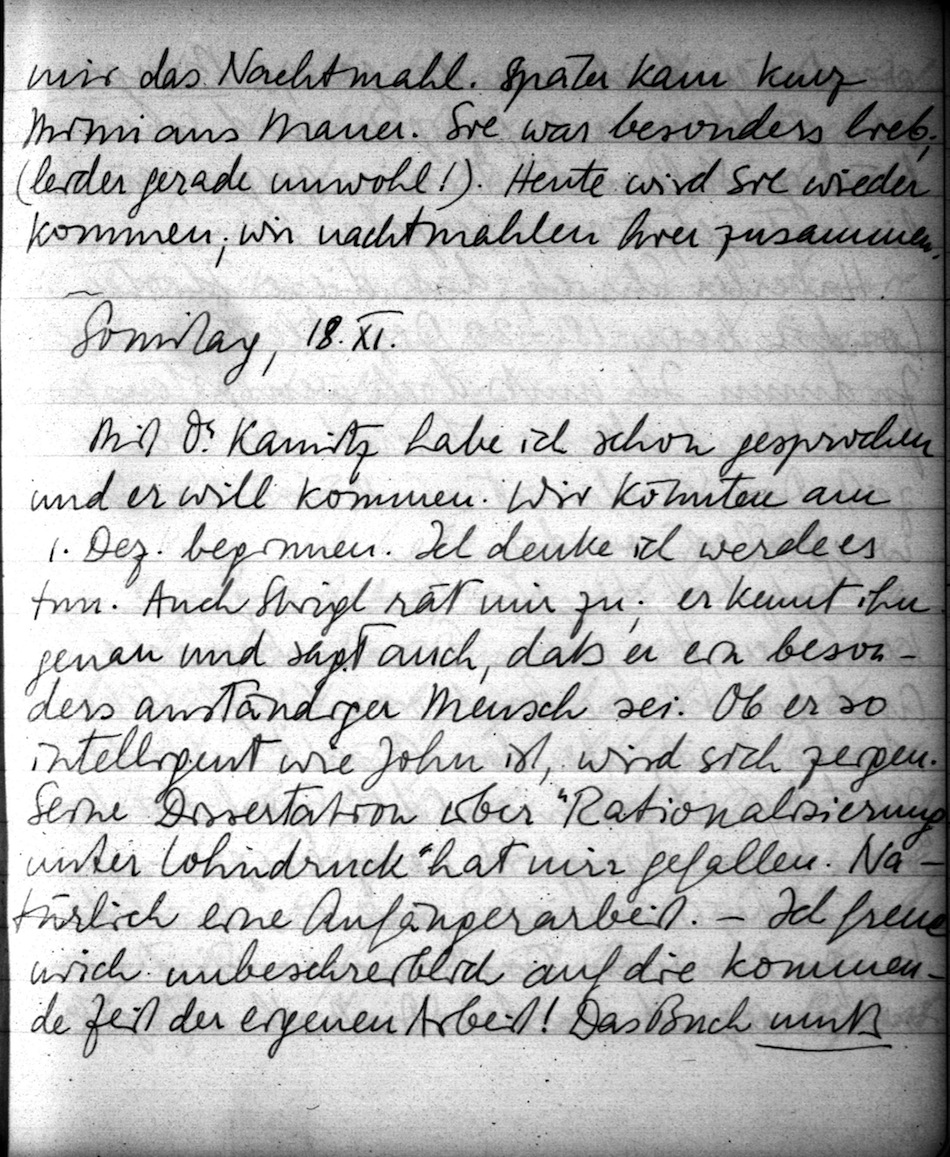 mir das Nachtmahl. Später kam kurz
Mimi aus Mauer. Sie war besonders lieb,
(leider gerade unwohl!). Heute wird sie wieder
kommen; wir nachtmahlen hier zusammen.
Sonntag, 18. XI.
Mit Dr. Kamitz habe ich schon gesprochen
und er will kommen. Wir könnten am
1. Dez. beginnen. Ich denke ich werde es
tun. Auch Strigl rät mir zu; er kennt ihn
genau und sagt auch, daß er ein beson-
ders anständiger Mensch sei. Ob er so
intelligent wie John ist, wird sich zeigen.
Seine Dissertation über "Rationalisierung
unter Lohndruck" hat mir gefallen. Na-
türlich eine Anfängerarbeit. – Ich freue
mich unbeschreiblich auf die kommen-
de Zeit der eigenen Arbeit! Das Buch muß